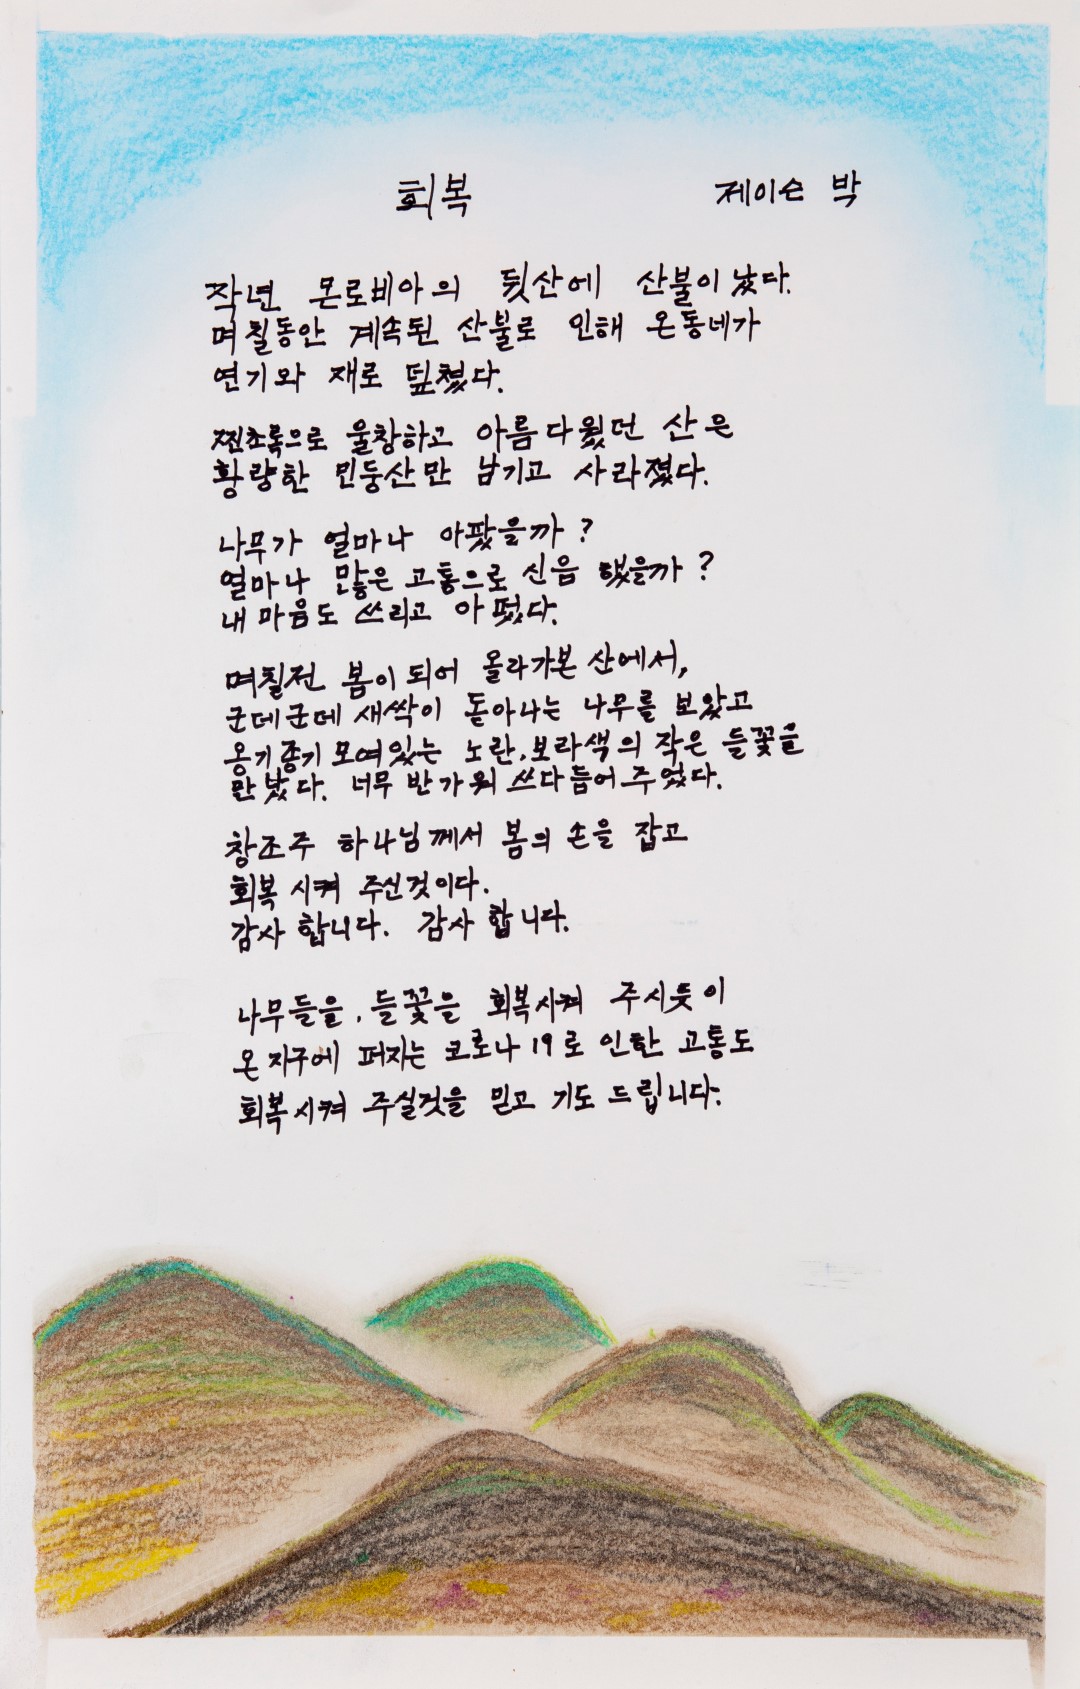 회복 제이슨 박
작년 몬로비아의 뒷산에 산불이 났다.
며칠동안 계속된 산불로 인해 온동네가
연기와 재로 덮쳤다.
찐초록으로 울창하고 아름다웠던 산은
황량한 민둥산만 남기고 사라졌다.
나무가 얼마나 아팠을까?
얼마나 많은 고통으로 신음 했을까?
내 마음도 쓰리고 아펐다.
며칠전 봄이 되어 올라가본 산에서,
군데군데 새싹이 돋아나는 나무를 보았고
옹기종기 모여있는 노란, 보라색의 작은 들꽃을
만났다. 너무 반가워 쓰다듬어 주었다.
창조주 하나님께서 봄의 손을 잡고
회복 시켜 주신것이다.
감사 합니다. 감사 합니다.
나무들을, 들꽃을 회복시켜 주시듯이
온 지구에 퍼지는 코로나 19로 인한 고통도
회복시켜 주실것을 믿고 기도 드립니다.